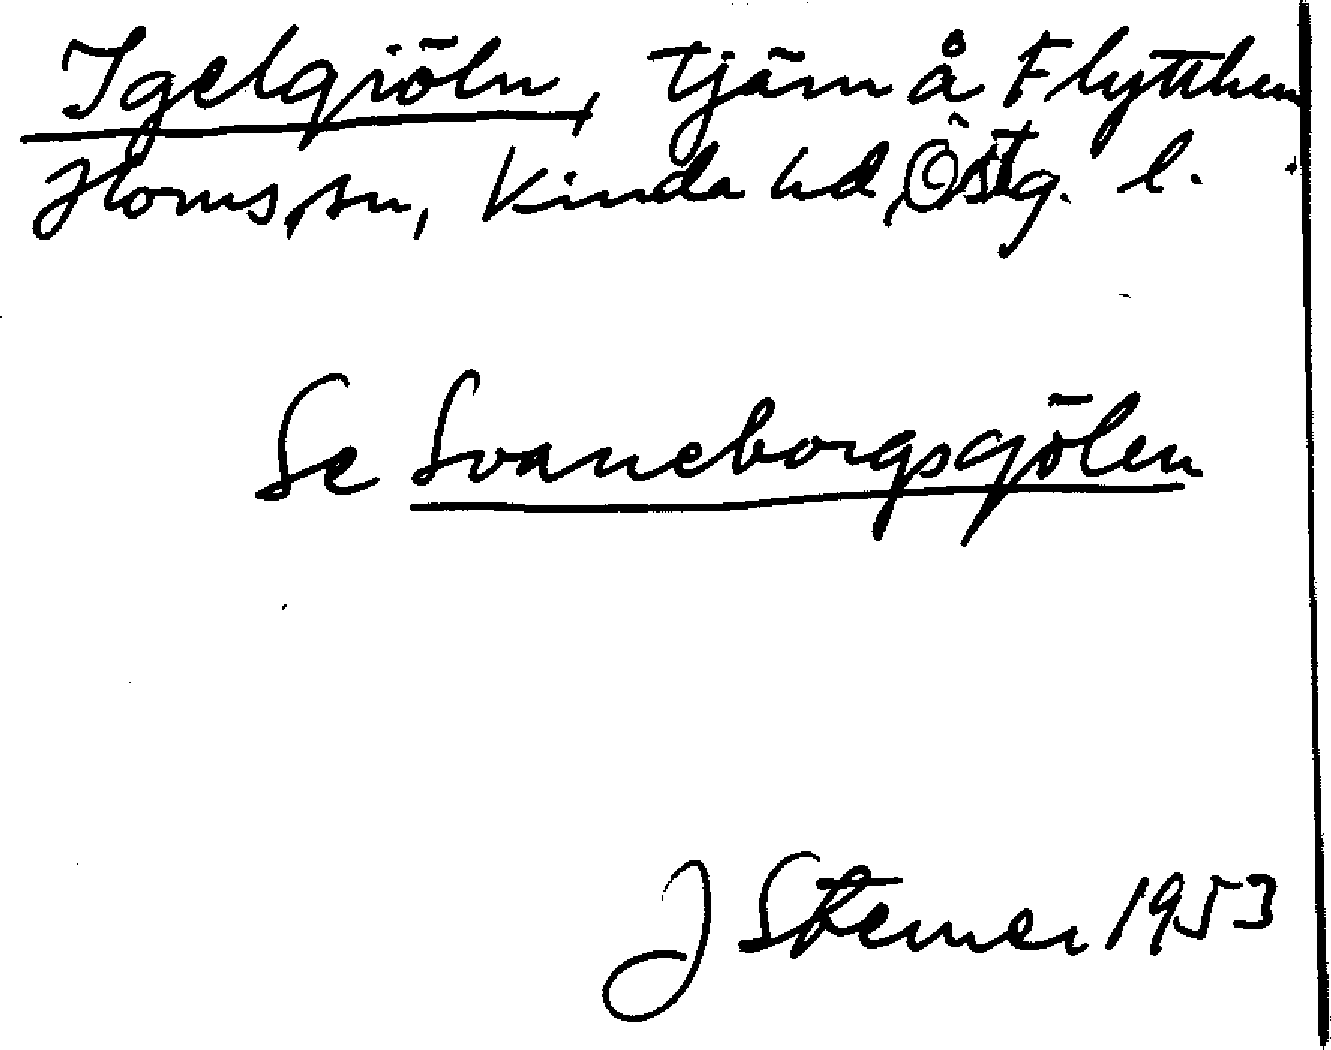 Igelgiöln, tjärn å Flytthem
Horns sn, Kinda hd, Östg. l.
Se Svaneborgsgölen
J Sterner 1953